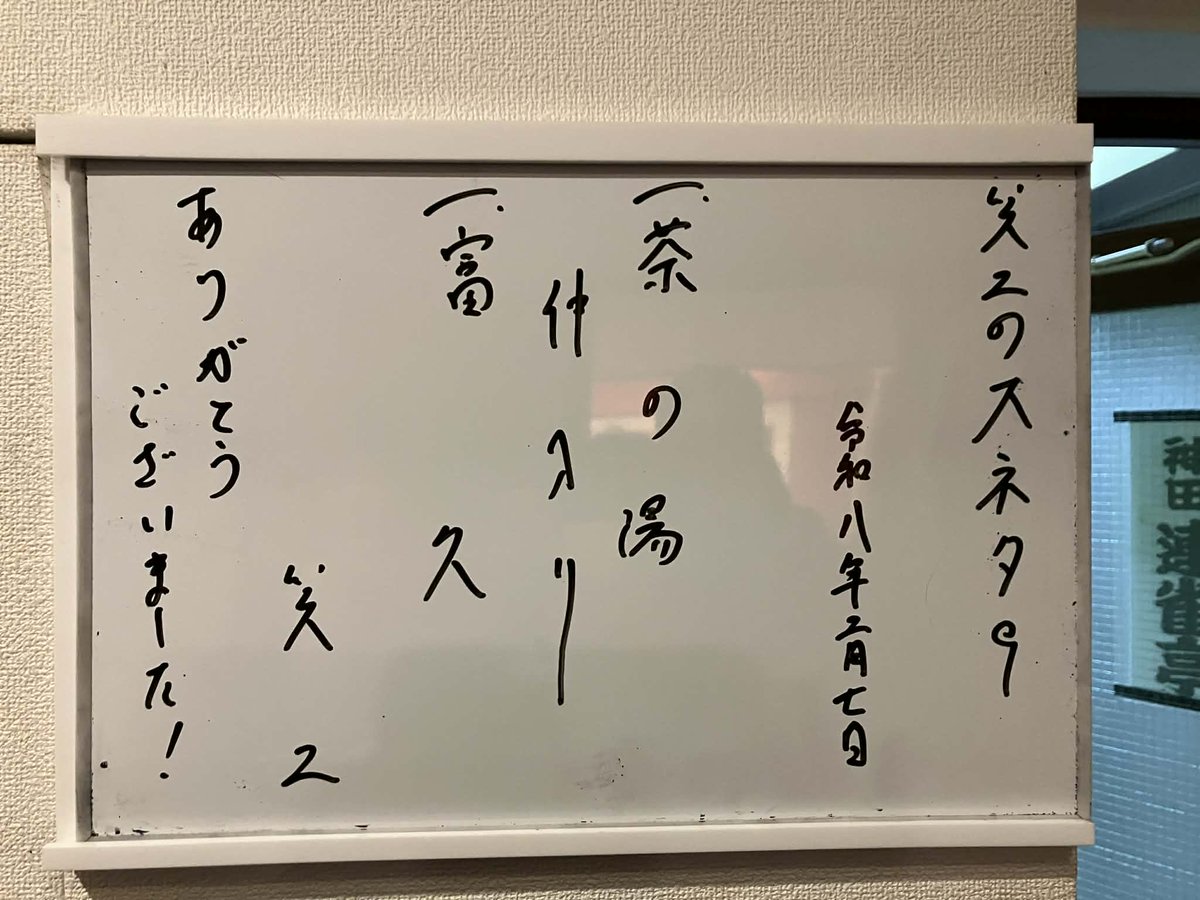 笑二のスネタ9
令和八年二月七日
一、茶の湯
仲入り
一、富久
笑二
ありがとう
ございました!
神田連雀亭